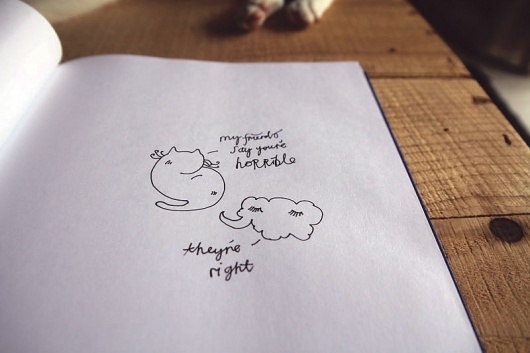 my friends
say you're
horrible
they're
right